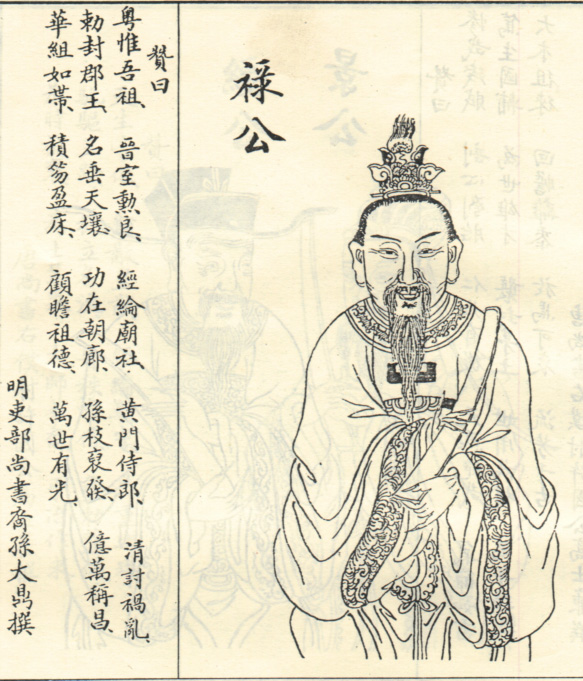 祿公
贊曰
粵惟吾祖、晉室勲良、經綸廟社、黃門侍郎、清討禍亂、
勅封郡王、名垂天壤、功在朝廊、孫枝裒發、億萬稱昌、
華組如帶、積笏盈床、顧瞻祖德、萬世有光、
明吏部尚書裔孫大鼎撰